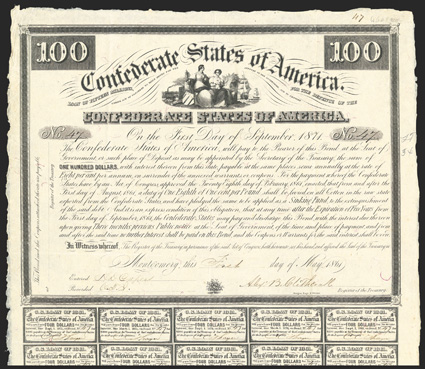 117
100 100
Confederate States of America.
LOAN OF FIFTEEN MILLIONS, FOR THE DEFENCE OF THE
CONFEDERATE STATES OF AMERICA.
No. 47 On the First Day of September 1871 No. 47
The Confederate States of America, will pay to the Bearer of this Bond at the Seat of
Government or such place of Deposit as may be appointed by the Secretary of the Treasury, the sum of
ONE HUNDRED DOLLARS, with interest thereon from this date, payable at the same places, semi annually at the rate of
Eight per cent per annum, on surrender of the annexed warrants or coupons. For the payment whereof the Confederate
States have by an Act of Congress approved the Twenty Eighth day of February 1861, enacted that from and after the
First day of August 1861, a duty of One Eighth of One cent per Pound, shall be levied on all Cotton in the raw state
exported from the Confederate States, and have pledged the same to be applied as a Sinking Fund to the extinguishment
of the said debt. And it is an express condition of this Obligation, that at any time after the Expiration of Five Years from
the First day of September 1861, the Confederate States may pay and discharge this Bond with the interest due thereon
upon giving three months previous Public notice at the Seat of Government, of the time and place of payment and from
and after the said time no further interest shall be paid on this Bond and the Coupons or Warrants for the said interest shall be void
In Witness whereof, The Register of the Treasury in pursuance of the said Act of Congress, hath hereunto set his hand and affixed the Seal of the Treasury at
Montgomery, this First day of May 1861
Entered
Recorded Register of the Treasury
C.S. LOAN OF 1861. C.S. LOAN OF 1861. C.S. LOAN OF 1861. C.S. LOAN OF 1861. C.S. LOAN OF 1861.
Confederate States of America Confederate States of America Confederate States of America Confederate States of America Confederate States of America
FOUR DOLLARS FOUR DOLLARS FOUR DOLLARS FOUR DOLLARS FOUR DOLLARS
C.S. LOAN OF 1861. C.S. LOAN OF 1861. C.S. LOAN OF 1861. C.S. LOAN OF 1861. C.S. LOAN OF 1861.
Confederate States of America Confederate States of America Confederate States of America Confederate States of America Confederate States of America
FOUR DOLLARS FOUR DOLLARS FOUR DOLLARS FOUR DOLLARS FOUR DOLLARS